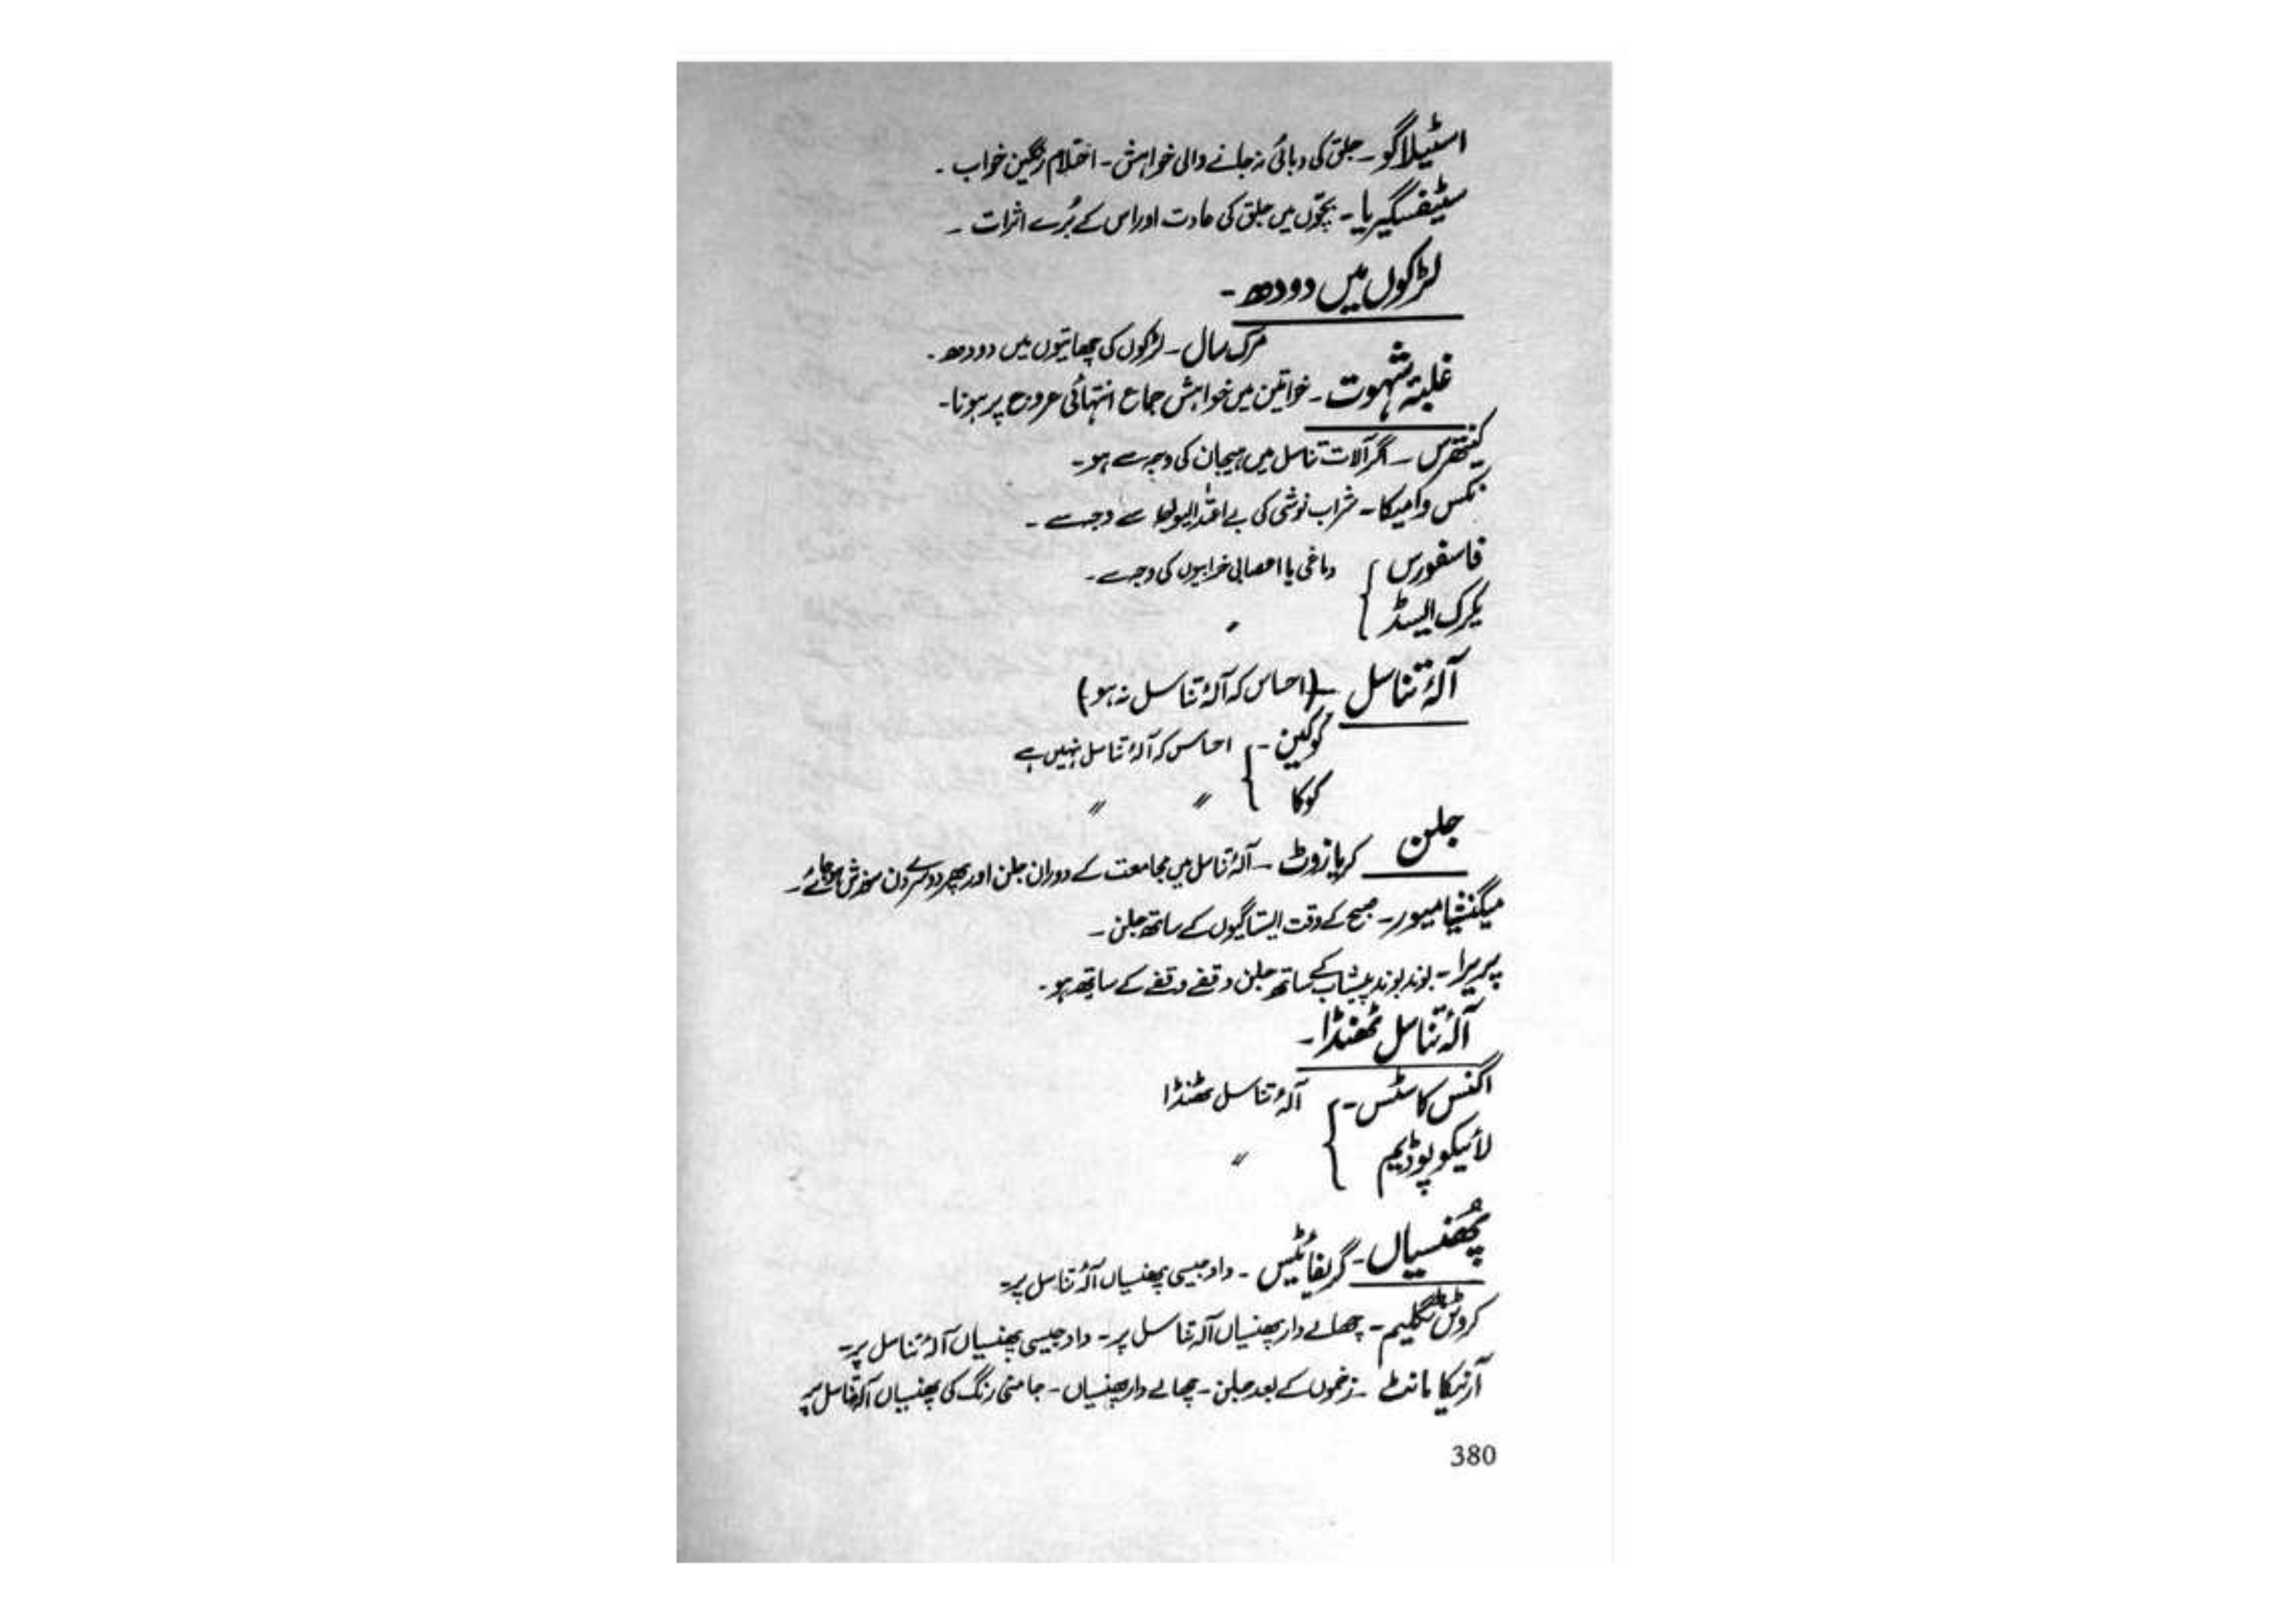 اسٹیلاگو - جلق کی دبائی نہ جانے والی خواہش - احتلام رنگین خواب -
سٹیفسگیریا - بچّوں میں جلق کی عادت اور اس کے بُرے اثرات -
لڑکوں میں دودھ -
مرک سال - لڑکوں کی چھاتیوں میں دودھ -
غلبۂ شہوت - خواتین میں خواہش جماع انتہائی عروج پر ہونا -
کینتھرس - اگر آلات تناسل میں ہیجان کی وجہ سے ہو -
نکس وامیکا - شراب نوشی کی بے اعتدالیوں سے وجہ سے -
فاسفورس } دماغی یا اعصابی خرابیوں کی وجہ سے -
پکرک ایسڈ } "
آلۂ تناسل - (احساس کہ آلۂ تناسل نہ ہو)
کوکین - } احساس کہ آلۂ تناسل نہیں ہے
کوکا } " "
جلن کریازوٹ - آلۂ تناسل میں مجامعت کے دوران جلن اور پھر دوسرے دن سوزش ہو جائے -
میگنیشیا میور - صبح کے وقت ایستادگیوں کے ساتھ جلن -
پریرا - بوند بوند پیشاب کے ساتھ جلن وقفے وقفے کے ساتھ ہو -
آلۂ تناسل ٹھنڈا -
اگنس کاسٹس - } آلۂ تناسل ٹھنڈا
لائیکوپوڈیم } "
پُھنسیاں - گریفائٹس - داد جیسی پھنسیاں آلۂ تناسل پر -
کروٹن ٹگلیم - چھالے دار پھنسیاں آلہ تناسل پر - داد جیسی پھنسیاں آلۂ تناسل پر -
آرنیکا مانٹ - زخموں کے بعد جلن - چھالے دار پھنسیاں - جامنی رنگ کی پھنسیاں آلۂ تناسل پر
380